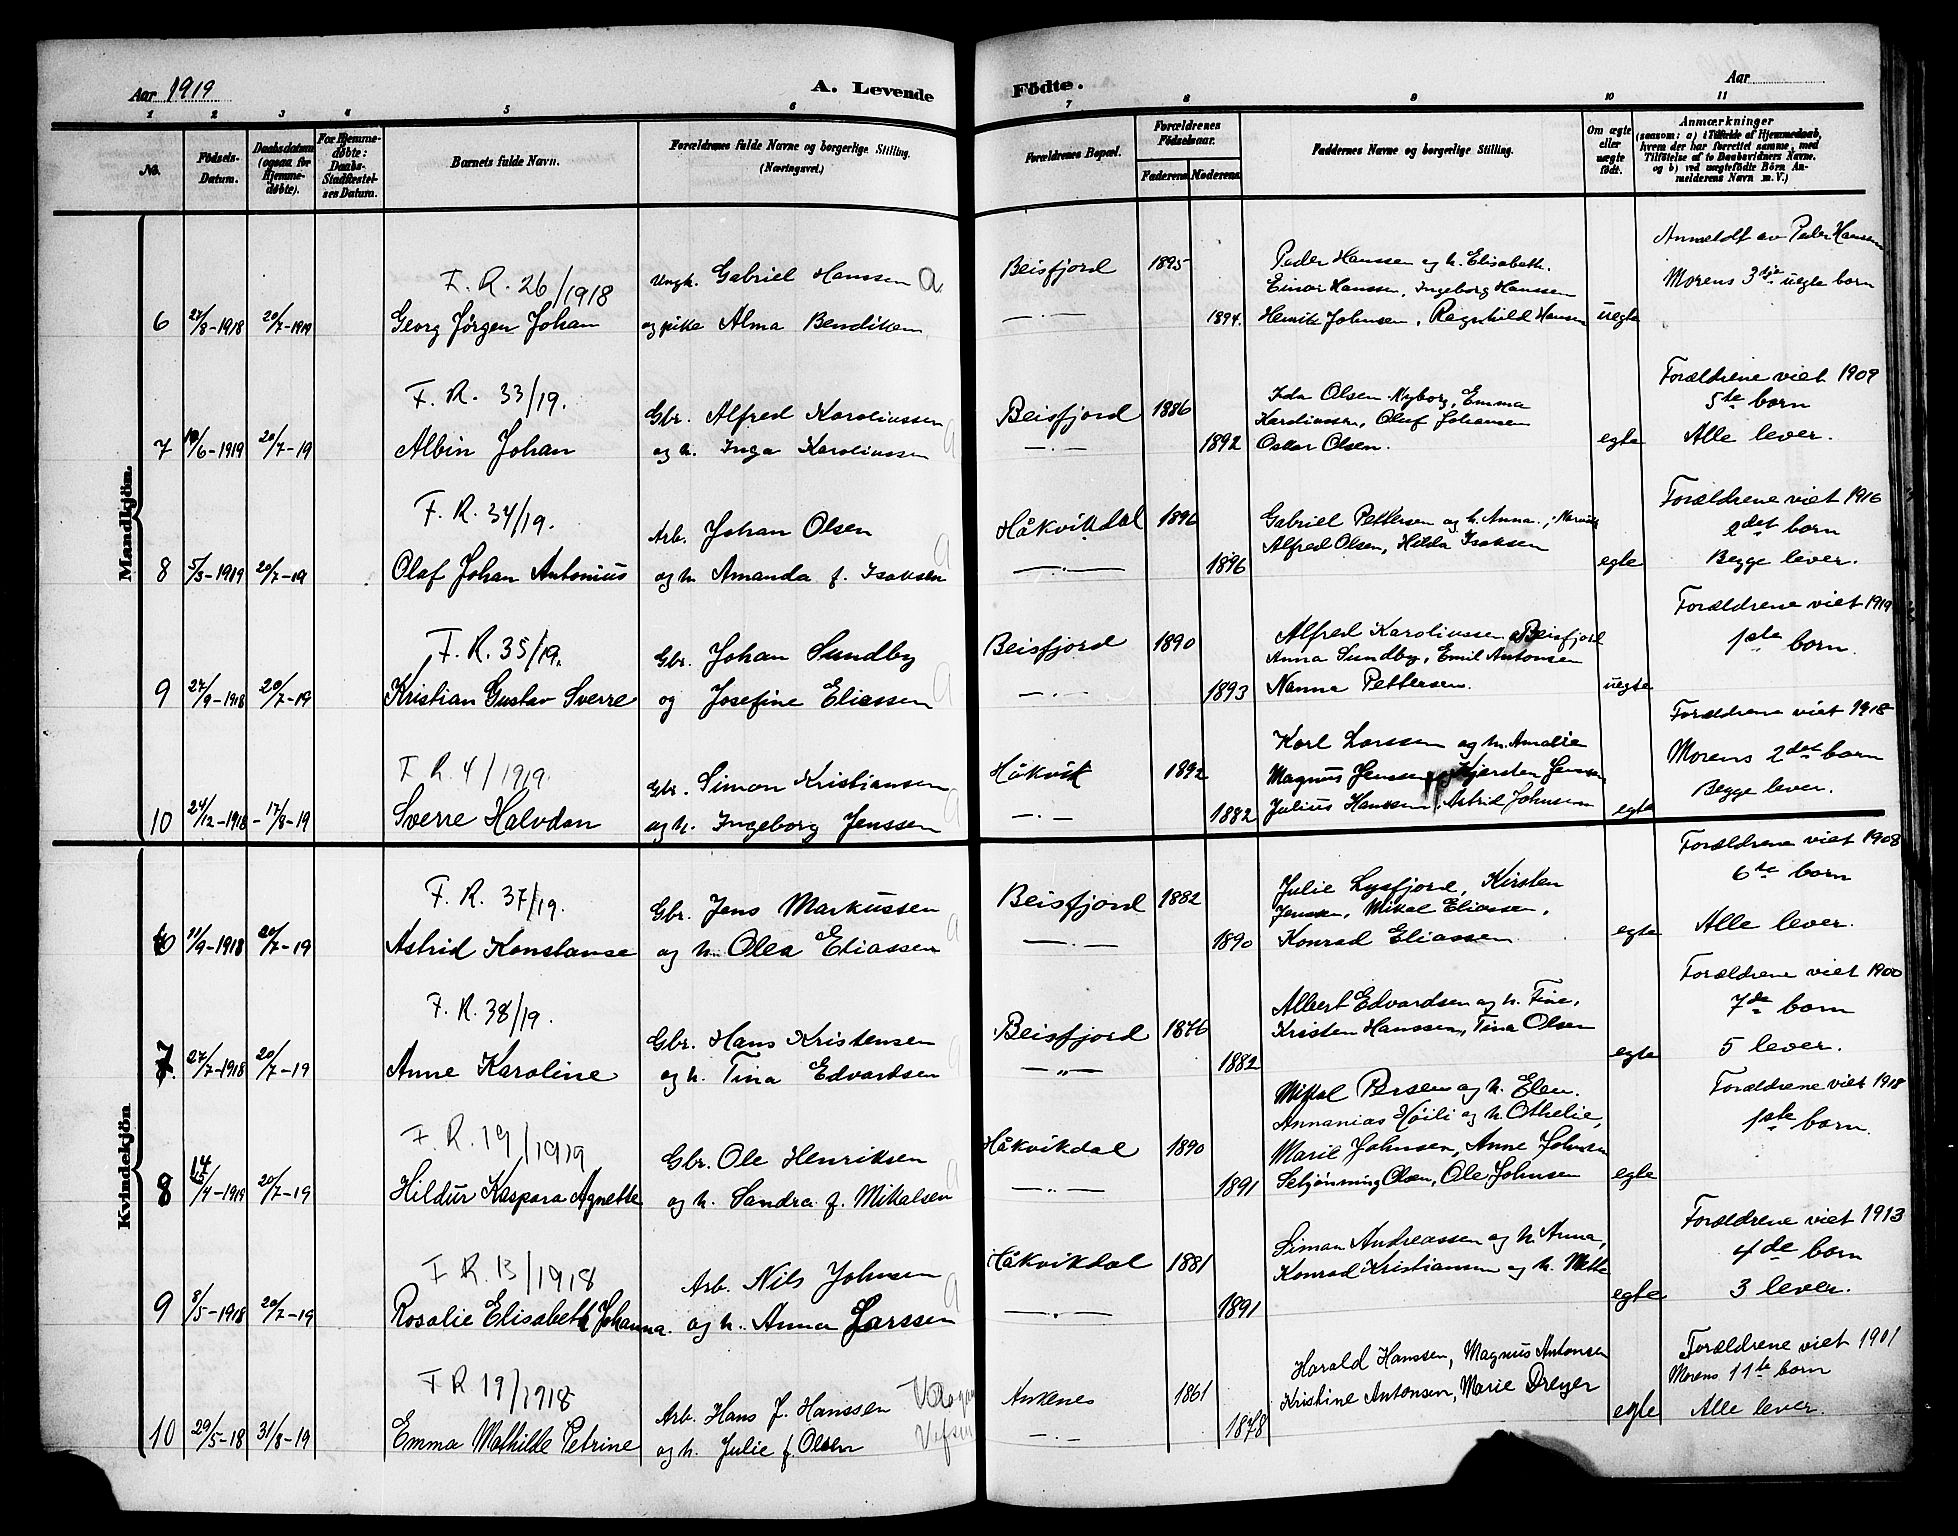 Aar 1919
A. Levende
Födte.
Aar
1 2 3 4 5 6 7 8 9 10 11
No.
Födsels-
Datum.
Daabsdatum
(ogsaa for
Hjemme-
döbte).
For Hjemme-
döbte:
Daabs-
Stadfæstel-
ses Datum.
Barnets fulde Navn.
Forældrenes fulde Navne og borgerlige Stilling.
(Næringsvei.)
Forældrenes Bopæl.
Forældrenes
Födselsaar.
Faderens Moderens
Faddernes Navne og borgerlige Stilling.
Om ægte
eller
uægte
födt.
Anmærkninger
(saasom: a) i Tilfælde af Hjemmedaab,
hvem der har forrettet samme, med
Tilföielse af to Daabsvidners Navne,
og b) ved uægtefödte Börn An-
melderens Navn m. V.)
Mandkjön.
F. R. 26/1918
Ungk. Gabriel Hanssen a.
Beisfjord 1895
Peder Hanssen og h. Elisabeth.
Einar Hanssen, Ingeborg Hanssen
Anmeldt av Peder Hansen
Morens 3dje uegte born
6 27/8-1918 20/7-1919 Georg Jørgen Johan og pike Alma Bendiksen —.— 1894. Henrik Johnsen, Ragnhild Hansen uegte
F. R. 33/19.
Gbr. Alfred Karoliussen
Beisfjord 1886
Ida Olsen Nyborg, Emma
Karoliussen, Oluf Johansen
Forældrene viet 1909
5te born
7 /6-1919 20/7-19 Albin Johan og h. Inga Karoliussen —.— 1892 Oskar Olsen. egte Alle lever.
F. R. 34/19.
Arb. Johan Olsen
Håkvikdal 1896
Gabriel Pettersen og h. Anna.
Alfred Olsen, Hilda Isaksen
Forældrene viet 1916
2det born
8 5/3-1919 20/7-19 Olaf Johan Antonius og h. Amanda f. Isaksen —.— 1896 egte Begge lever.
F. R. 35/19.
Gbr. Johan Sundby
Beisfjord 1890
Alfred Karoliussen Beisfjord
Anna Sundby, Emil Antonsen
Forældrene viet 1919
1ste born.
9 27/9-1918 20/7-19 Kristian Gustav Sverre og Josefine Eliassen —.— 1893 Nanna Pettersen. uegte
F. R. 4/1919.
Gbr. Simon Kristiansen
Håkvik 1892
Karl Larssen og h. Amalie
Magnus Jenssen og Kjersten Jenssen
Forældrene viet 1918
Morens 2det born
Begge lever.
10 24/12-1918 - 17/8-19 Sverre Halvdan og h. Ingeborg Jenssen —.— 1882 Julius Hanssen, Astrid Johnsen egte
Kvindekjön
F. R. 37/19.
Gbr. Jens Markussen
Beisfjord 1882
Julie Lysfjord, Kirsten
Jenssen, Mikal Eliassen,
Forældrene viet 1908
6te born
6 11/9-1918 20/7-19 Astrid Konstanse og h. Olea Eliassen —.— 1890 Konrad Eliassen egte Alle lever.
F. R. 38/19.
Gbr. Hans Kristensen
Beisfjord 1876
Albert Edvardsen og h. Tine,
Kristen Hanssen, Tina Olsen
Forældrene viet 1900
7de born
7 27/7-1918 20/7-19 Anne Karoline og h. Tina Edvardsen —„— 1882 egte 5 lever.
F. R. 19/1919
Gbr. Ole Henriksen
Håkvikdal 1890
Mikal Persen og h. Elen.
Annanias Høili og h. Othelie,
Marie Johnsen, Anne Johnsen
Forældrene viet 1918
1ste born.
8 14/4-1919 20/7-19 Hildur Kaspara Agnette og h. Sandra f. Mikalsen —„— 1891 Olsen, Ole Johnsen egte
F. R. 13/1918
Arb. Nils Johnsen
Håkvikdal 1881
Simon Andreassen og h. Anna,
Konrad Kristiansen og h. Mette
Forældrene viet 1913
4de born
9 8/5-1918 20/7-19 Rosalie Elisabeth Johanna. og h. Anna Larssen —„— 1891 egte 3 lever.
F R 19/1918
Arb. Hans J. Hanssen
Ankenes 1861
Harald Hanssen, Magnus Antonsen
Kristine Antonsen, Marie Dreyer
Forældrene viet 1901
Morens 11te born
10 29/5-18 31/8-19 Emma Mathilde Petrine og h. Julie f. Olsen —.— 1878 egte Alle lever.